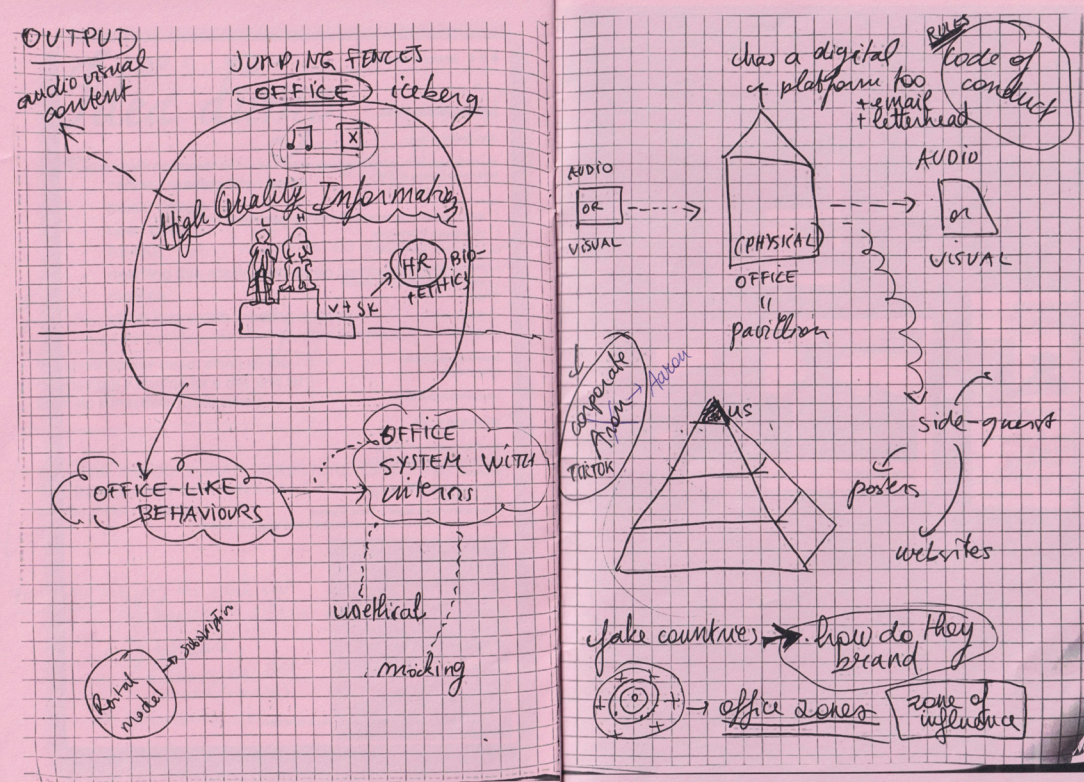 OUTPUT
audio visual
content
JUMPING FENCES
OFFICE iceberg
X
High Quality Information
L H
HR BIO-
+ETHICS
V+SK
OFFICE-LIKE
BEHAVIOURS
OFFICE
SYSTEM WITH
interns
unethical
mocking
Rental
model
subscription
has a digital
platform too
+ email
+ letterhead
RULES
Code of
conduct
AUDIO
OR
VISUAL
(PHYSICAL)
OFFICE
=
pavillion
AUDIO
or
VISUAL
corporate
Aron
Aaron
TIKTOK
us
side-quest
posters
websites
fake countries
how do they
brand
office zones
zone of
influence